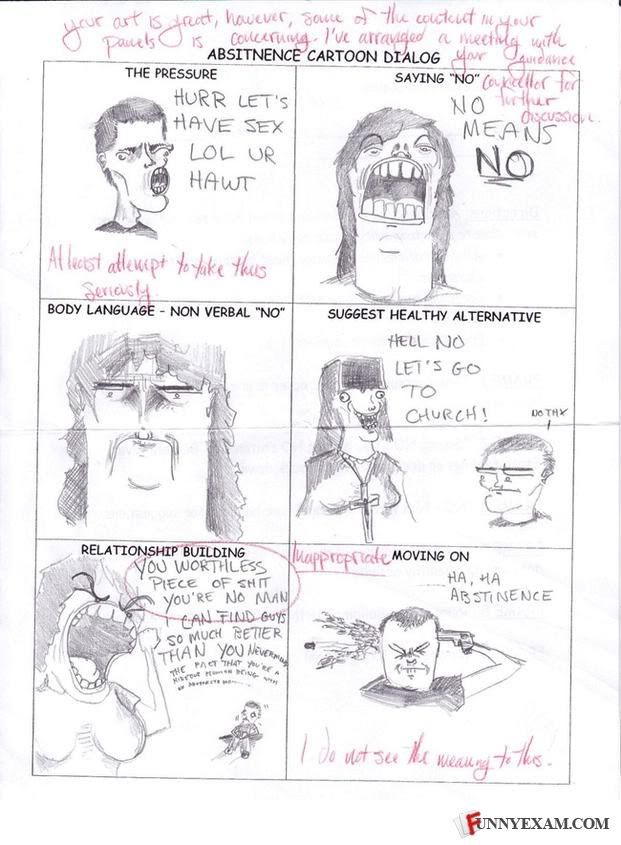 your art is great, however, some of the content in your
panels is concerning. I've arranged a meeting with
your guidance
councellor for
further
discussion.
ABSITNENCE CARTOON DIALOG
THE PRESSURE
HURR LET'S
HAVE SEX
LOL UR
HAWT
At least attempt to take this
seriously.
SAYING "NO"
NO
MEANS
NO
BODY LANGUAGE - NON VERBAL "NO"
SUGGEST HEALTHY ALTERNATIVE
HELL NO
LET'S GO
TO
CHURCH!
NO THX
RELATIONSHIP BUILDING
YOU WORTHLESS
PIECE OF SHIT
YOU'RE NO MAN
I CAN FIND GUYS
SO MUCH BETTER
THAN YOU NEVERMIND
THE FACT THAT YOU'RE A
HIDEOUS HUMAN BEING WITH
NO
Inappropriate
MOVING ON
HA, HA
ABSTINENCE
I do not see the meaning to this.
FUNNYEXAM.COM